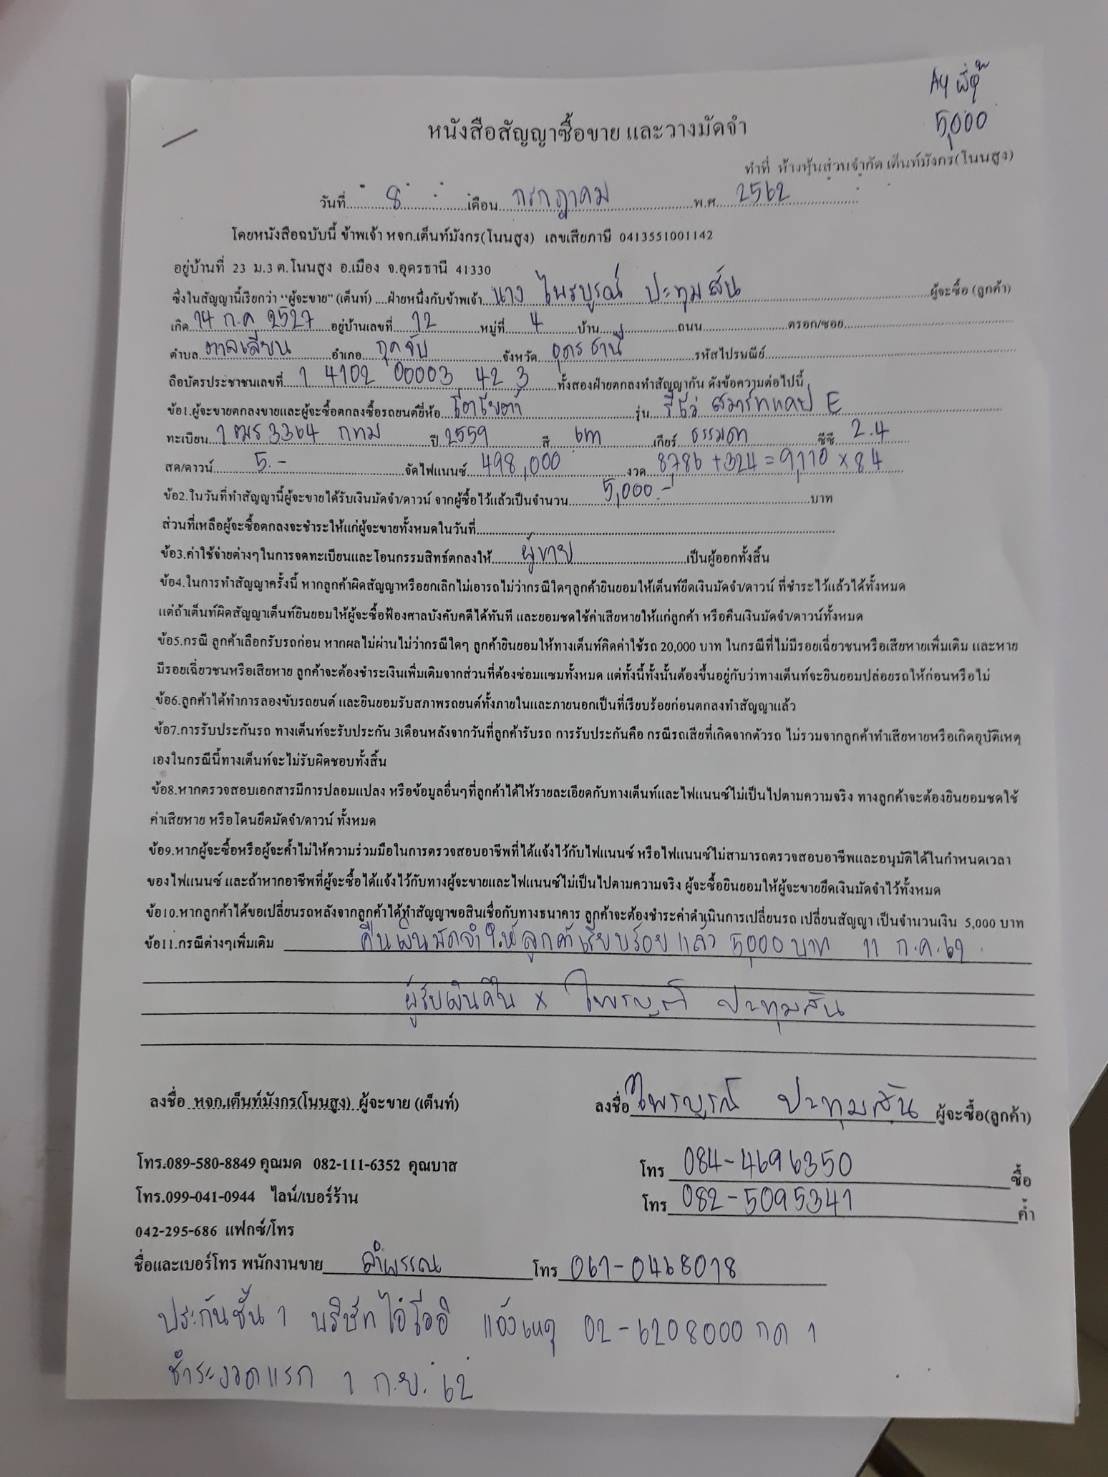 5,000
หนังสือสัญญาซื้อขาย และวางมัดจำ
ทำที่ ห้างหุ้นส่วนจำกัด เต็นท์มังกร(โนนสูง)
วันที่ 8 เดือน กรกฎาคม พ.ศ. 2562
โดยหนังสือฉบับนี้ ข้าพเจ้า หจก.เต็นท์มังกร(โนนสูง) เลขเสียภาษี 0413551001142
อยู่บ้านที่ 23 ม.3 ต.โนนสูง อ.เมือง จ.อุดรธานี 41330
ซึ่งในสัญญานี้เรียกว่า "ผู้จะขาย" (เต็นท์) ....ฝ่ายหนึ่งกับข้าพเจ้า นาง ไพรบูรณ์ ปะทุมสัน ผู้จะซื้อ (ลูกค้า)
เกิด 14 ก.ค 2527 อยู่บ้านเลขที่ 12 หมู่ที่ 4 บ้าน ถนน ตรอก/ซอย
ตำบล ตาลเลียน อำเภอ กุดจับ จังหวัด อุดรธานี รหัสไปรษณีย์
ถือบัตรประชาชนเลขที่ 1 4102 00003 42 3 ทั้งสองฝ่ายตกลงทำสัญญากัน ดังข้อความต่อไปนี้
ข้อ1.ผู้จะขายตกลงขายและผู้จะซื้อตกลงซื้อรถยนต์ยี่ห้อ โตโยต้า รุ่น รีโว่ สมาร์ทแคป E
ทะเบียน 1ฒร 3364 กทม ปี 2559 สี เทา เกียร์ ธรรมดา ซีซี 2.4
สด/ดาวน์ 5.- จัดไฟแนนซ์ 498,000 งวด 8786 + 324 = 9,110 x 84
ข้อ2.ในวันที่ทำสัญญานี้ผู้จะขายได้รับเงินมัดจำ/ดาวน์ จากผู้ซื้อไว้แล้วเป็นจำนวน 5,000.- บาท
ส่วนที่เหลือผู้จะซื้อตกลงจะชำระให้แก่ผู้จะขายทั้งหมดในวันที่
ข้อ3.ค่าใช้จ่ายต่างๆในการจดทะเบียนและโอนกรรมสิทธ์ตกลงให้ ผู้ขาย เป็นผู้ออกทั้งสิ้น
ข้อ4.ในการทำสัญญาครั้งนี้ หากลูกค้าผิดสัญญาหรือยกเลิกไม่เอารถไม่ว่ากรณีใดๆลูกค้ายินยอมให้เต็นท์ยึดเงินมัดจำ/ดาวน์ ที่ชำระไว้แล้วได้ทั้งหมด
แต่ถ้าเต็นท์ผิดสัญญาเต็นท์ยินยอมให้ผู้จะซื้อฟ้องศาลบังคับคดีได้ทันที และยอมชดใช้ค่าเสียหายให้แก่ลูกค้า หรือคืนเงินมัดจำ/ดาวน์ทั้งหมด
ข้อ5.กรณี ลูกค้าเลือกรับรถก่อน หากผลไม่ผ่านไม่ว่ากรณีใดๆ ลูกค้ายินยอมให้ทางเต็นท์คิดค่าใช้รถ 20,000 บาท ในกรณีที่ไม่มีรอยเฉี่ยวชนหรือเสียหายเพิ่มเติม และหาย
มีรอยเฉี่ยวชนหรือเสียหาย ลูกค้าจะต้องชำระเงินเพิ่มเติมจากส่วนที่ต้องซ่อมแซมทั้งหมด แต่ทั้งนี้ทั้งนั้นต้องขึ้นอยู่กับว่าทางเต็นท์จะยินยอมปล่อยรถให้ก่อนหรือไม่
ข้อ6.ลูกค้าได้ทำการลองขับรถยนต์ และยินยอมรับสภาพรถยนต์ทั้งภายในและภายนอกเป็นที่เรียบร้อยก่อนตกลงทำสัญญาแล้ว
ข้อ7.การรับประกันรถ ทางเต็นท์จะรับประกัน 3เดือนหลังจากวันที่ลูกค้ารับรถ การรับประกันคือ กรณีรถเสียที่เกิดจากตัวรถ ไม่รวมจากลูกค้าทำเสียหายหรือเกิดอุบัติเหตุ
เองในกรณีนี้ทางเต็นท์จะไม่รับผิดชอบทั้งสิ้น
ข้อ8.หากตรวจสอบเอกสารมีการปลอมแปลง หรือข้อมูลอื่นๆที่ลูกค้าได้ให้รายละเอียดกับทางเต็นท์และไฟแนนซ์ไม่เป็นไปตามความจริง ทางลูกค้าจะต้องยินยอมชดใช้
ค่าเสียหาย หรือโดนยึดมัดจำ/ดาวน์ ทั้งหมด
ข้อ9.หากผู้จะซื้อหรือผู้จะค้ำไม่ให้ความร่วมมือในการตรวจสอบอาชีพที่ได้แจ้งไว้กับไฟแนนซ์ หรือไฟแนนซ์ไม่สามารถตรวจสอบอาชีพและอนุมัติได้ในกำหนดเวลา
ของไฟแนนซ์ และถ้าหากอาชีพที่ผู้จะซื้อได้แจ้งไว้กับทางผู้จะขายและไฟแนนซ์ไม่เป็นไปตามความจริง ผู้จะซื้อยินยอมให้ผู้จะขายยึดเงินมัดจำไว้ทั้งหมด
ข้อ10.หากลูกค้าได้ขอเปลี่ยนรถหลังจากลูกค้าได้ทำสัญญาขอสินเชื่อกับทางธนาคาร ลูกค้าจะต้องชำระค่าดำเนินการเปลี่ยนรถ เปลี่ยนสัญญา เป็นจำนวนเงิน 5,000 บาท
ข้อ11.กรณีต่างๆเพิ่มเติม คืนเงินมัดจำให้ลูกค้าเรียบร้อยแล้ว 5000 บาท 11 ก.ค. 62
ผู้รับเงินคืน x ไพรบูรณ์ ปะทุมสัน
ลงชื่อ หจก.เต็นท์มังกร(โนนสูง) ผู้จะขาย (เต็นท์) ลงชื่อ ไพรบูรณ์ ปะทุมสัน ผู้จะซื้อ(ลูกค้า)
โทร.089-580-8849 คุณมด 082-111-6352 คุณบาส โทร 084-4696350 ซื้อ
โทร.099-041-0944 ไลน์/เบอร์ร้าน โทร 082-5095341 ค้ำ
042-295-686 แฟกซ์/โทร
ชื่อและเบอร์โทร พนักงานขาย ลำพรรณ โทร 061-0468018
ประกันชั้น 1 บริษัทไอโออิ แจ้งเหตุ 02-6208000 กด 1
ชำระงวดแรก 1 ก.ย. 62